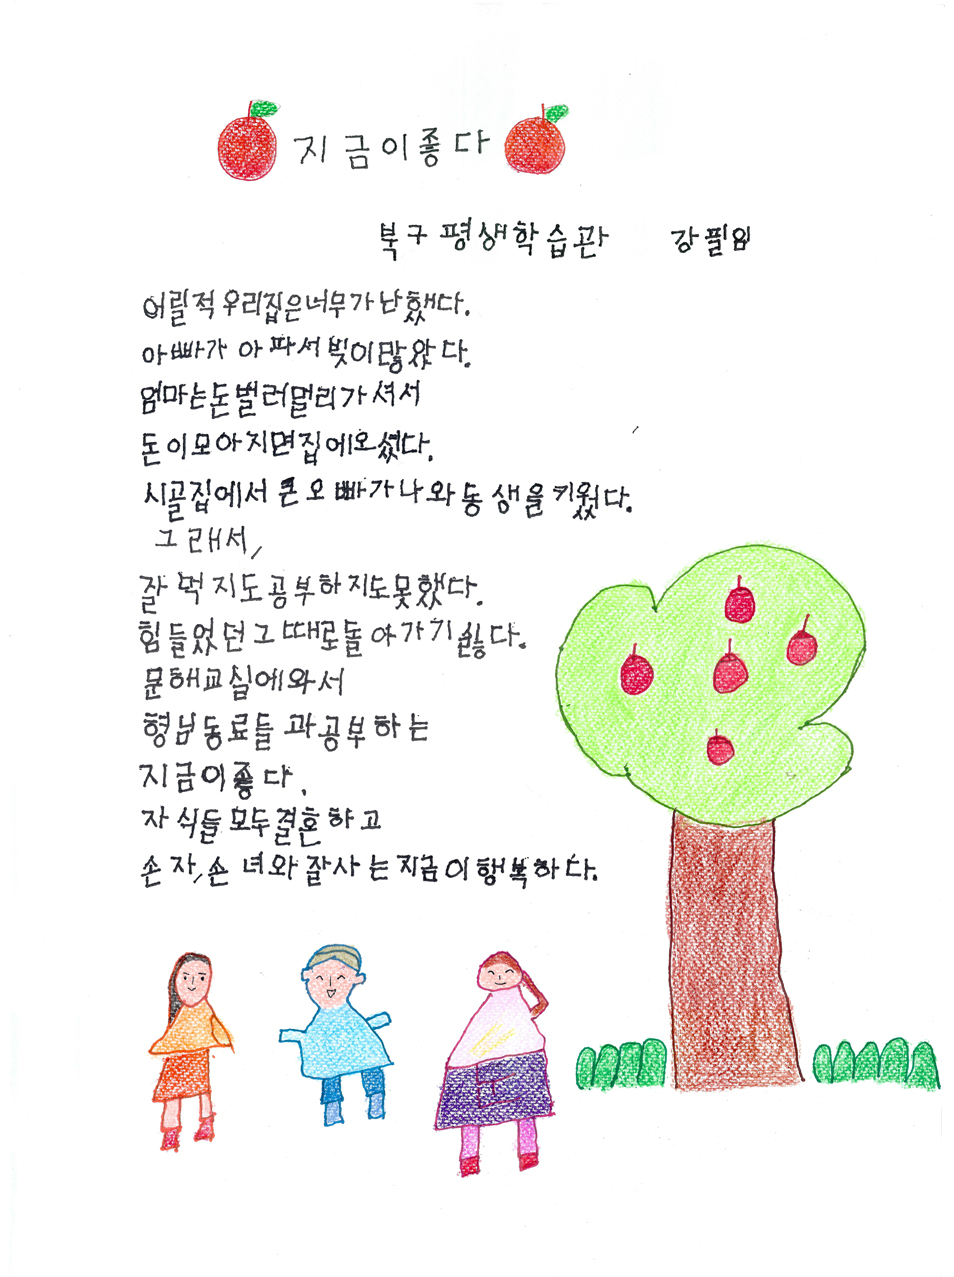 지금이좋다
북구 평생학습관 강필임
어릴적 우리집은너무가난했다.
아빠가 아파서빚이많았다.
엄마는돈벌러멀리가셔서
돈이모아지면집에오셨다.
시골집에서 큰오빠가나와동생을키웠다.
그래서,
잘먹지도공부하지도못했다.
힘들었던그때로돌아가기싫다.
문해교실에와서
형님동료들과공부하는
지금이좋다.
자식들모두결혼하고
손자,손녀와잘사는지금이행복하다.